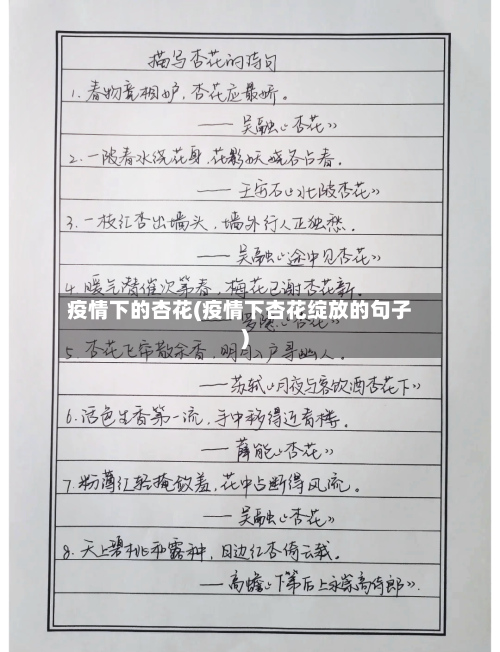 描写杏花的诗句
1. 春物竞相妒，杏花应最娇。
—— 吴融《杏花》
2. 一陂春水绕花身，花影妖娆各占春。
—— 王安石《北陂杏花》
3. 一枝红杏出墙头，墙外行人正独愁。
—— 吴融《途中见杏花》
4. 暖气潜催次第春，梅花已谢杏花新。
疫情下的杏花(疫情下杏花绽放的句子
)
5. 杏花飞帘散余香，明月入户寻幽人。
—— 苏轼《月夜与客饮酒杏花下》
6. 活色生香第一流，手中移得近青楼。
—— 薛能《杏花》
7. 粉薄红轻掩敛羞，花中占断得风流。
—— 吴融《杏花》
8. 天上碧桃和露种，日边红杏倚云栽。
—— 高蟾《下第后上永崇高侍郎》.